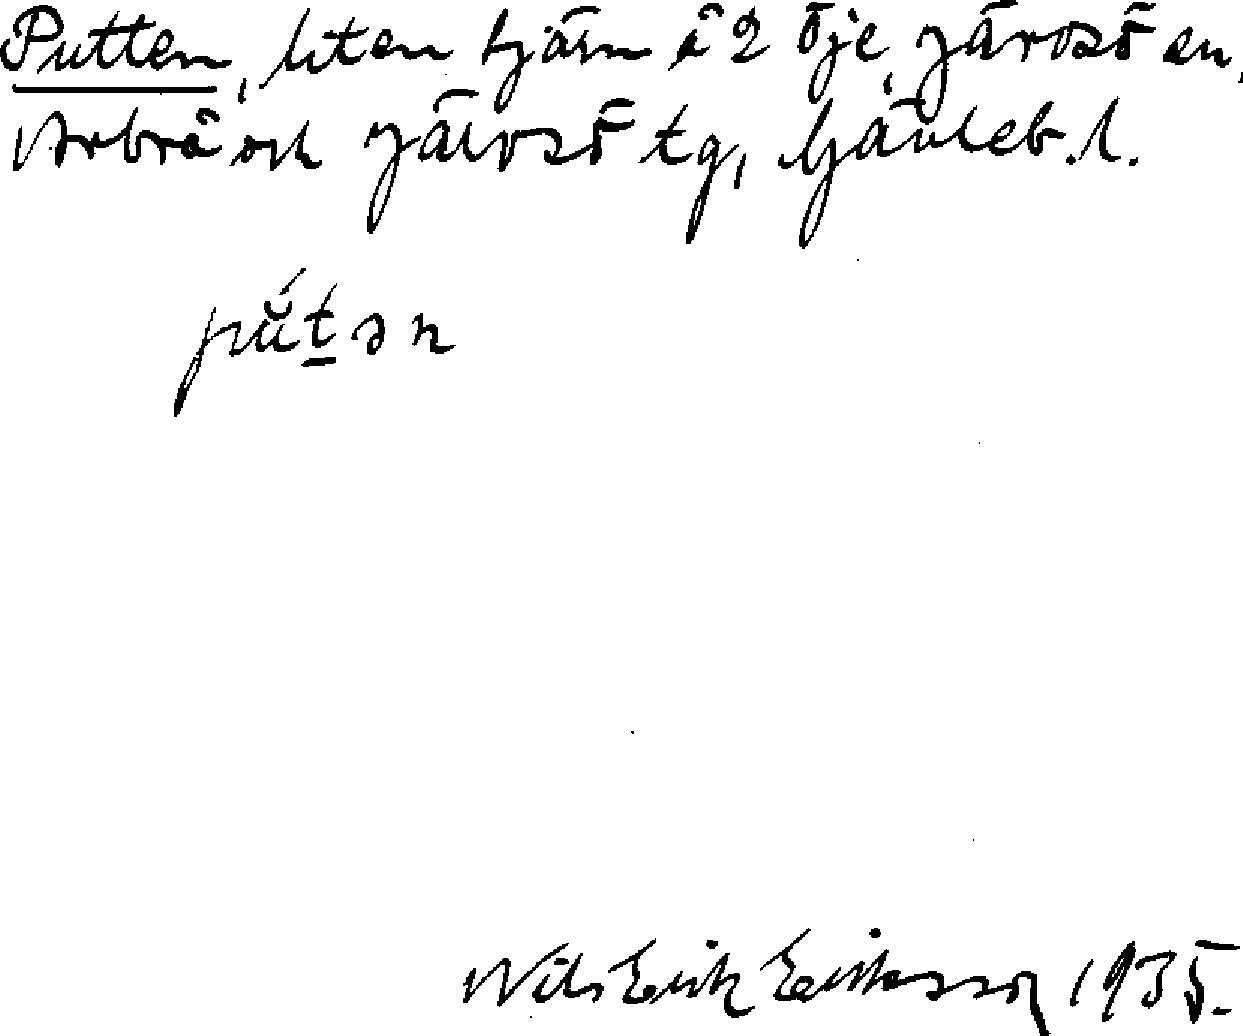 Putten, liten tjärn å 2 Öje, Järvsö sn,
Arbrå och Järvsö tg, Gävleb. l.
pŭ́t̲ən
Nils Erik Eriksson 1935.